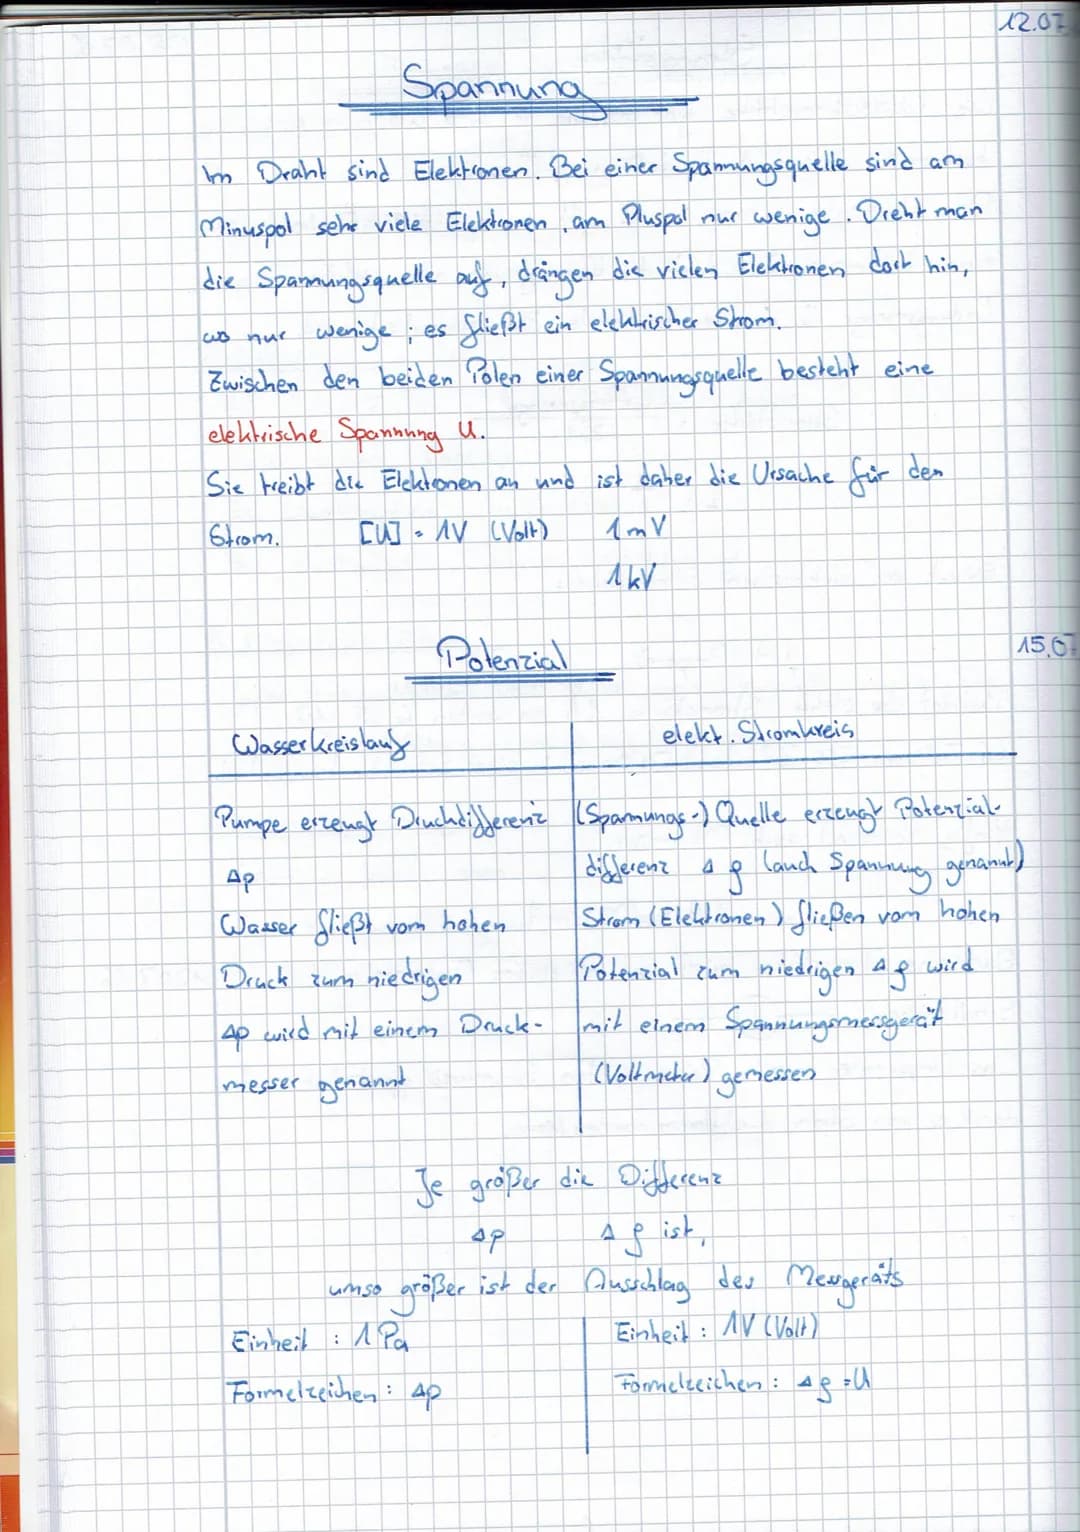 12.07
Spannung
Im Draht sind Elektronen. Bei einer Spannungsquelle sind am
Minuspol sehr viele Elektronen, am Pluspol nur wenige. Dreht man
die Spannungsquelle auf, drängen die vielen Elektronen dort hin,
wo nur wenige ; es fließt ein elektrischer Strom.
Zwischen den beiden Polen einer Spannungsquelle besteht eine
elektrische Spannung U.
Sie treibt die Elektronen an und ist daher die Ursache für den
Strom. [U] = 1V (Volt) 1mV
1kV
Potenzial 15.0
Wasserkreislauf elekt. Stromkreis
Pumpe erzeugt Druckdifferenz
Δp
Wasser fließt vom hohen
Druck zum niedrigen
Δp wird mit einem Druck-
messer genannt
(Spannungs-) Quelle erzeugt Potenzial-
differenz Δφ (auch Spannung genannt)
Strom (Elektronen) fließen vom hohen
Potenzial zum niedrigen Δφ wird
mit einem Spannungsmessgerät
(Voltmeter) gemessen
Je größer die Differenz
Δp Δφ ist,
umso größer ist der Ausschlag des Messgeräts
Einheit : 1 Pa
Formelzeichen : Δp
Einheit : 1V (Volt)
Formelzeichen : Δφ = U